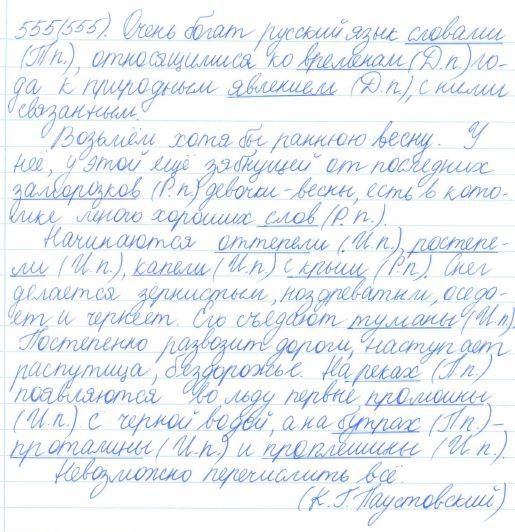 555(555). Очень богат русский язык словами
(Т.п.), относящимися ко временам (Д.п.) го-
да к природным явлением (Д.п.), с ними
связанным.
Возьмём хотя бы раннюю весну. У
неё, у этой ещё зябнущей от последних
заморозков (Р.п.) девочки-весны, есть в кото-
мке много хороших слов (Р.п.).
Начинаются оттепели (И.п.), ростепе-
ли (И.п.), капели (И.п.) с крыш (Р.п.). Снег
делается зернистым, ноздреватым, оседа-
ет и чернеет. Его съедают туманы (И.п.)
Постепенно развозит дороги, наступает
распутица, бездорожье. На реках (П.п.)
появляются во льду первые промоины
(И.п.) с черной водой, а на буграх (П.п.) –
проталины (И.п.) и проплешины (И.п.).
Невозможно перечислить всё.
(К.Г. Паустовский)